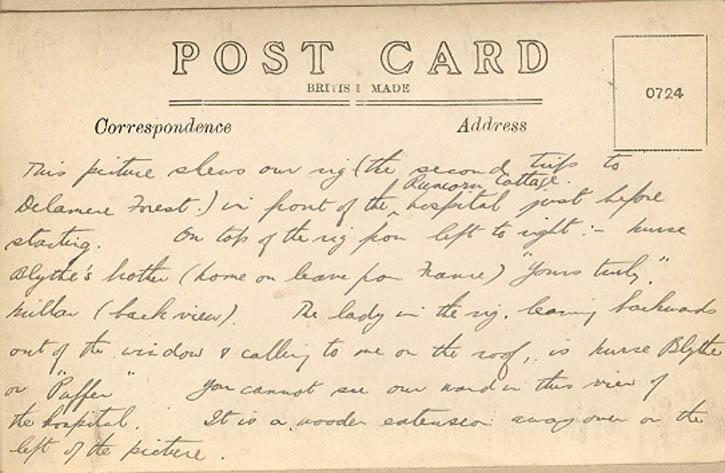 POST CARD
BRITISH MADE
0724
Correspondence Address
This picture shews our rig (the second trip to
Runcorn Cottage.
Delamere Forest.) in front of the hospital just before
starting. On top of the rig from left to right :- nurse
Blythe's brother (home on leave from France) "Yours truly."
Millar (back view). The lady in the rig, leaning backwards
out of the window & calling to me on the roof, is nurse Blythe
or "Puffer" You cannot see our ward in this view of
the hospital. It is a wooden extension away over on the
left of the picture.